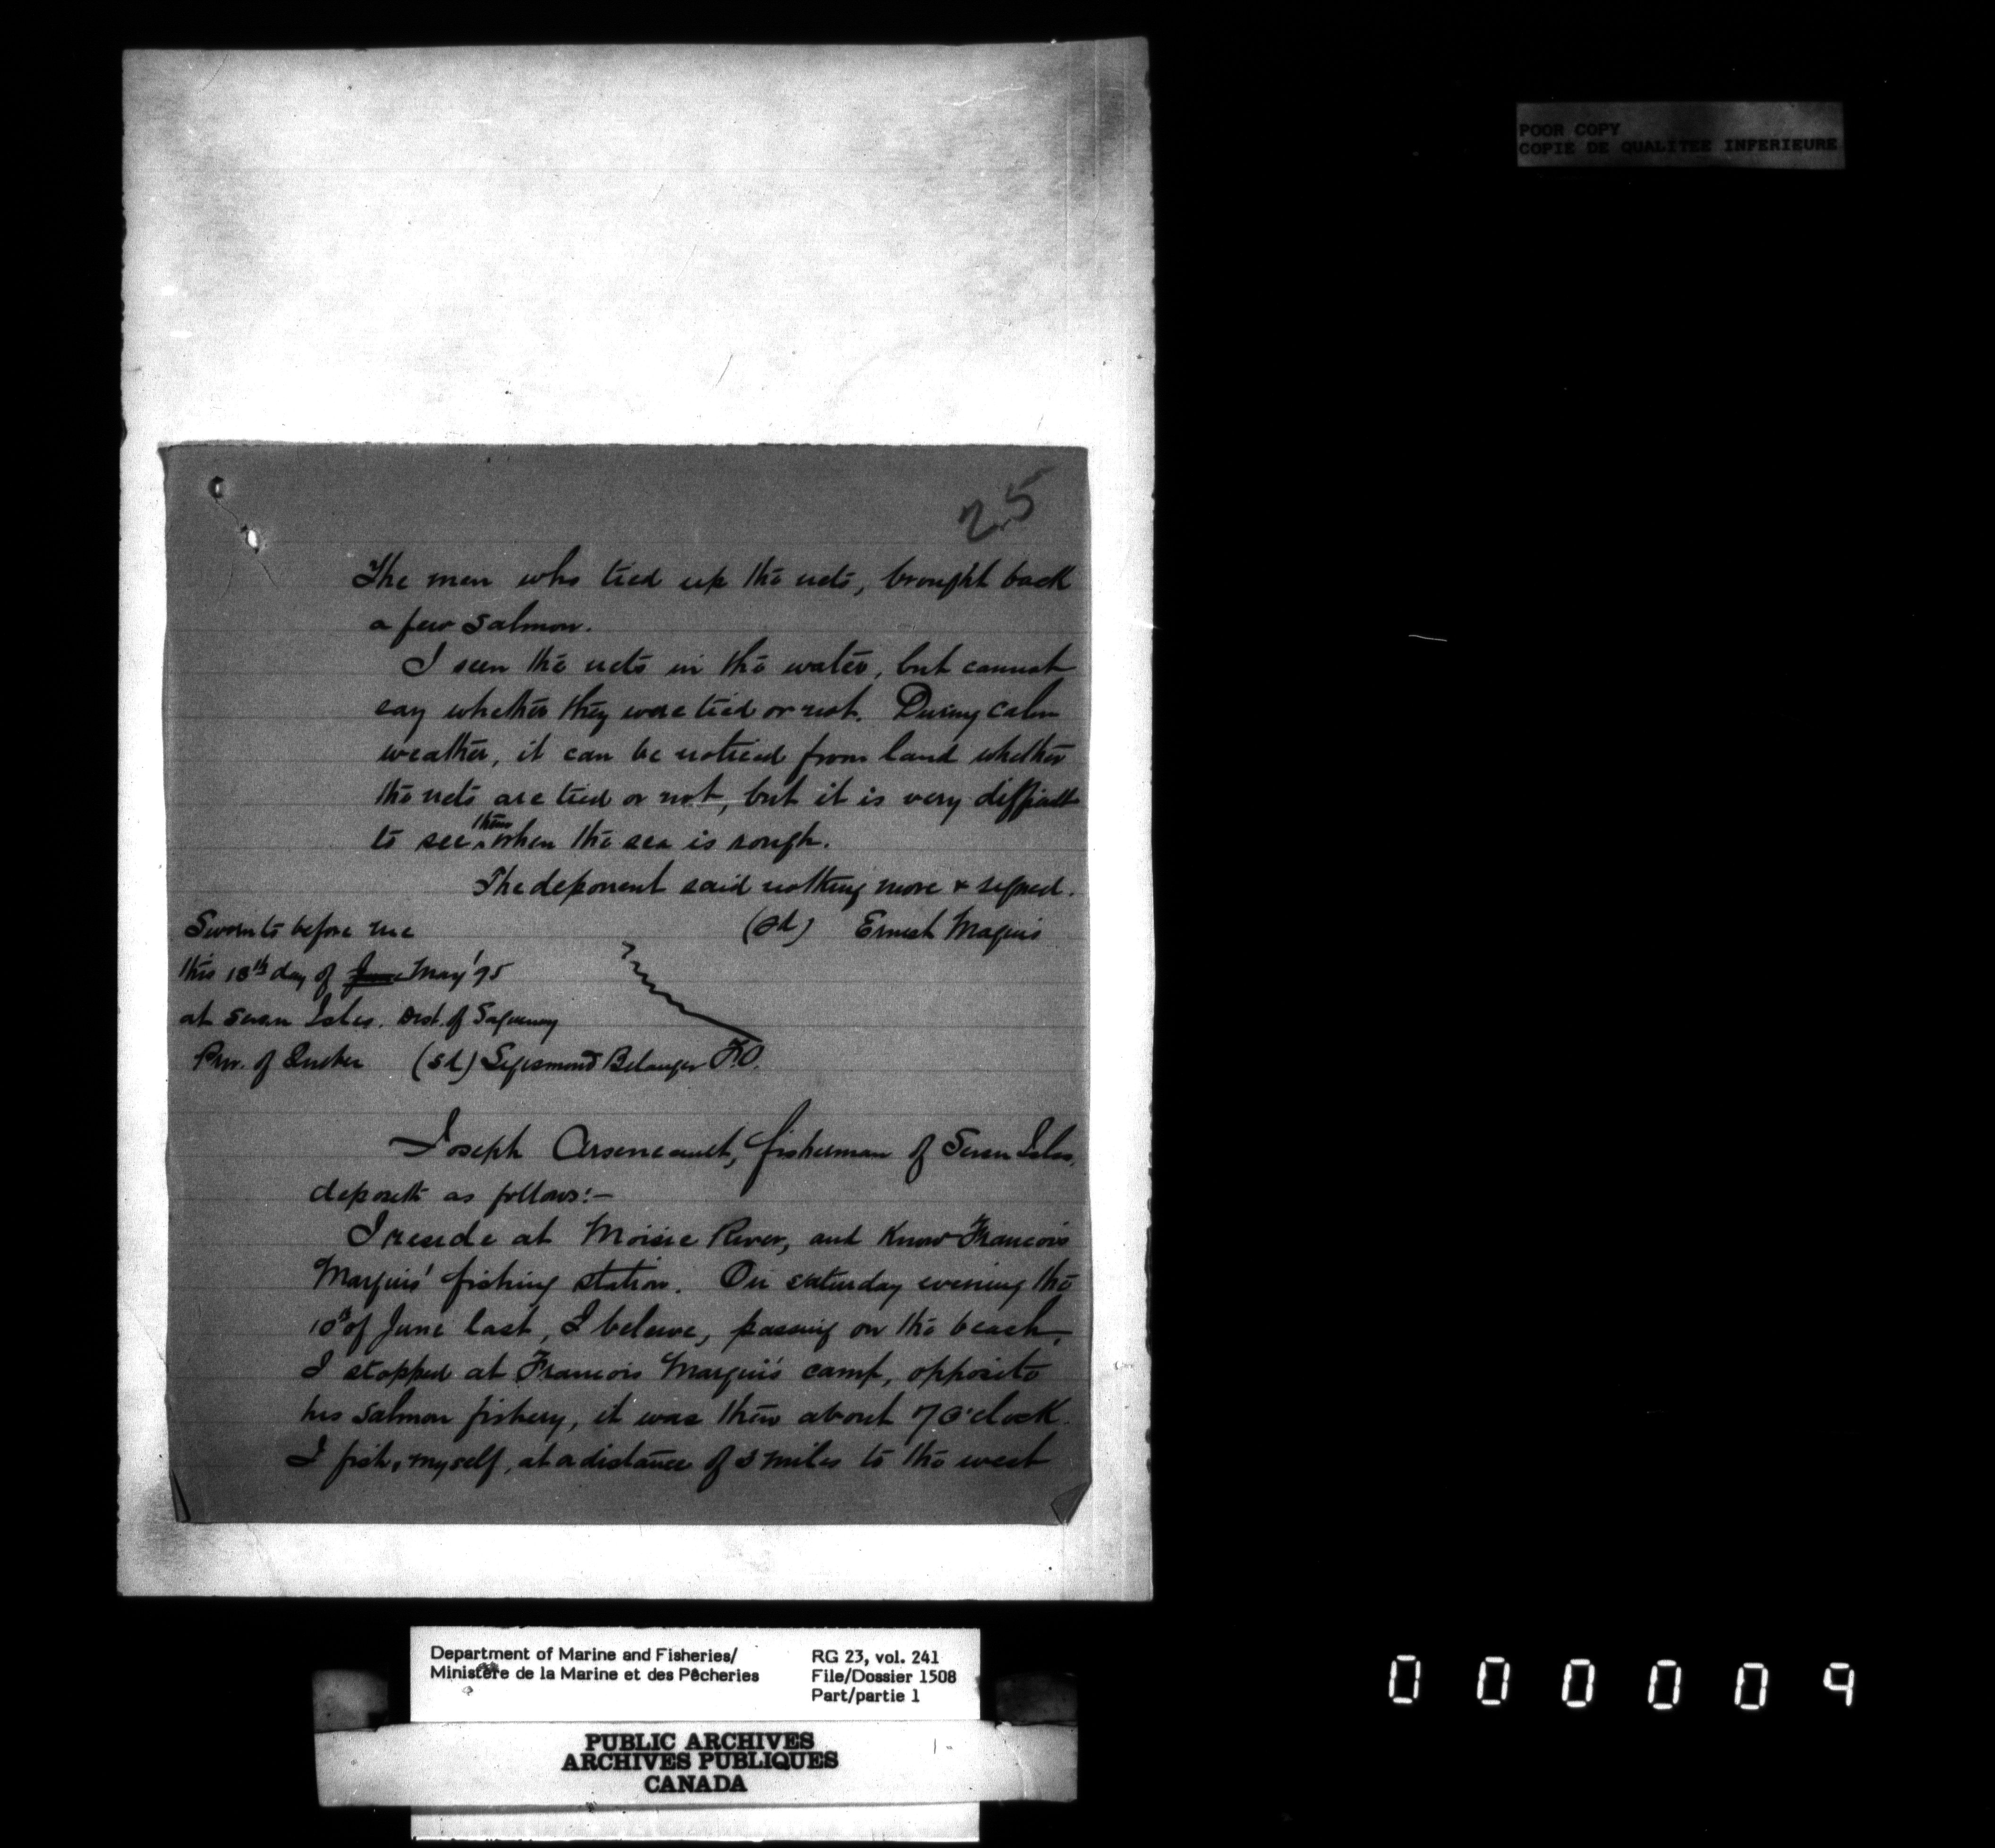 POOR COPY
COPIE DE QUALITEE INFERIEURE
25
The men who tied up the nets, brought back
a few salmon.
I seen the nets in the water, but cannot
say whether they were tied or not. During calm
weather, it can be noticed from land whether
the nets are tied or not, but it is very difficult
to see them when the sea is rough.
The deponent said nothing more & signed.
(Sd) Ernest Maquis
Sworn to before me
this 18th day of June May '95
at Seven Isles. Dist. of Saguenay
Prov. of Quebec (Sd) Sigismond Belanger F.O.
Joseph Arseneault, fisherman of Seven Isles,
deposeth as follows:—
I reside at Moisie River, and know Francois
Marquis' fishing station. On saturday evening the
10th of June last, I believe, passing on the beach,
I stopped at Francois Marquis camp, opposite
his salmon fishery, it was then about 7 O'clock.
I fish, myself, at a distance of 3 miles to the west
Department of Marine and Fisheries/
Ministère de la Marine et des Pêcheries
RG 23, vol. 241
File/Dossier 1508
Part/partie 1
PUBLIC ARCHIVES
ARCHIVES PUBLIQUES
CANADA
000009